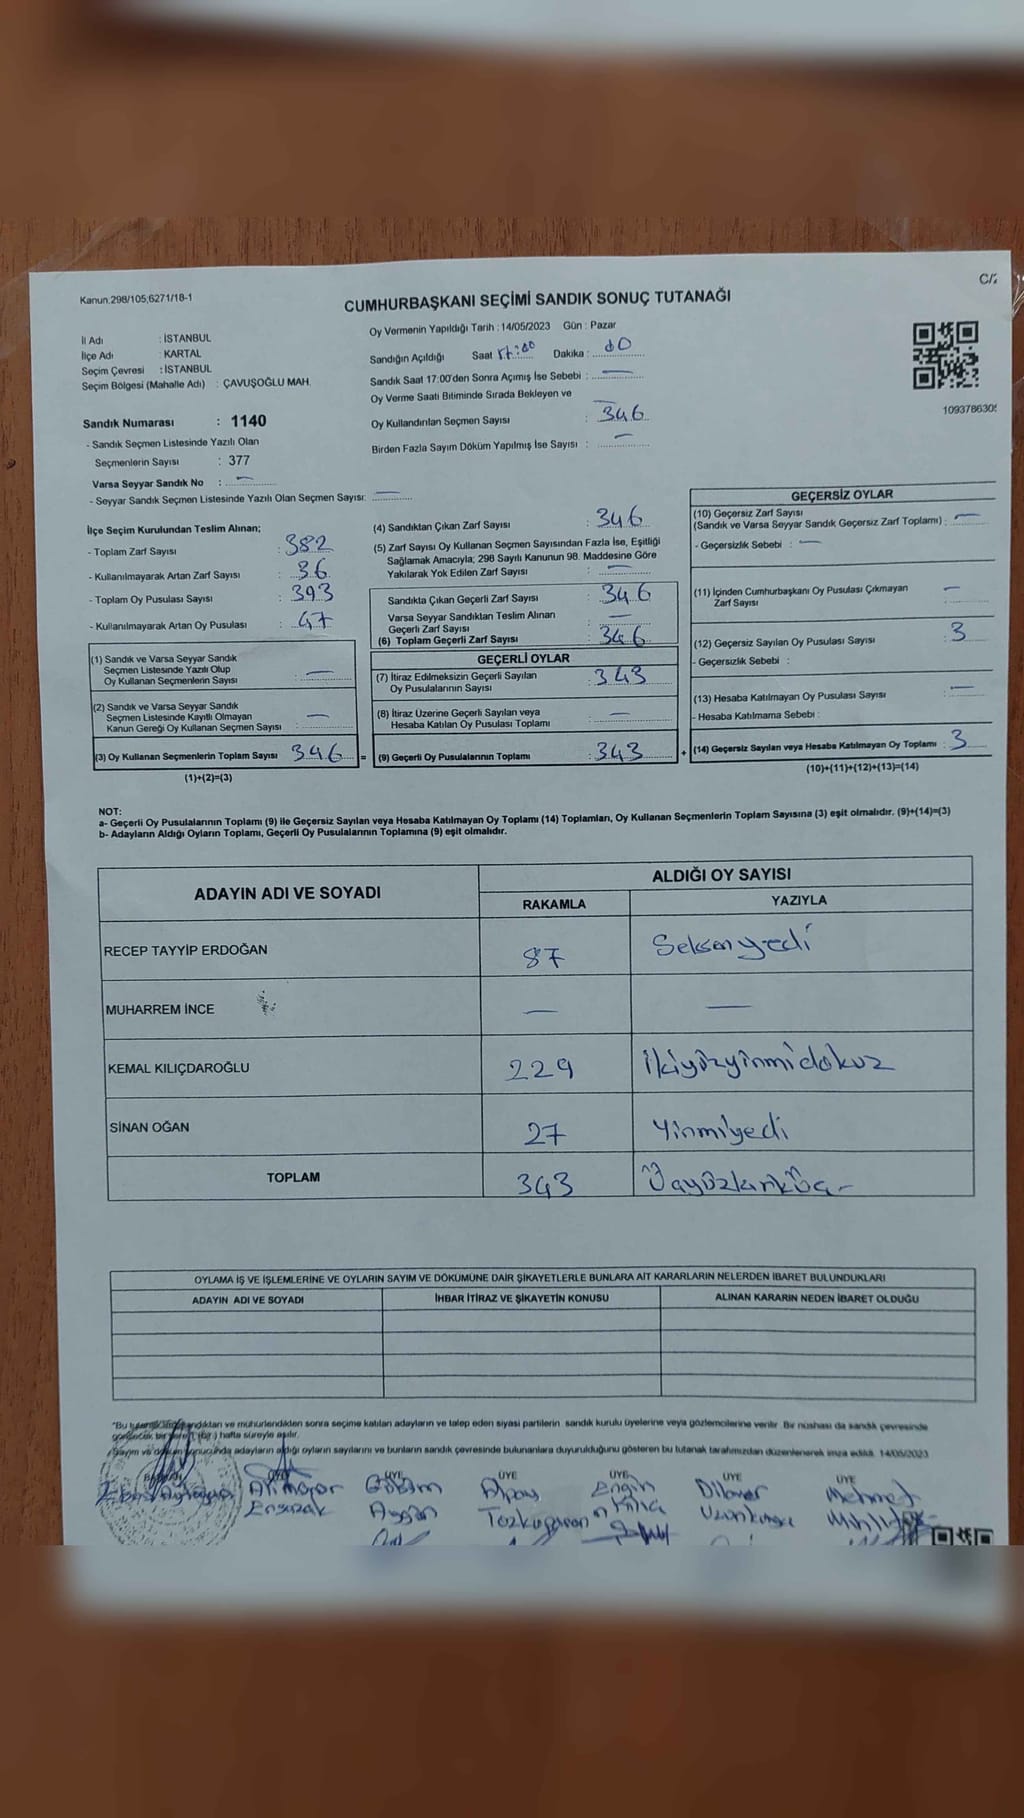 C/2
Kanun.298/105;6271/18-1
CUMHURBAŞKANI SEÇİMİ SANDIK SONUÇ TUTANAĞI
İl Adı : İSTANBUL
İlçe Adı : KARTAL
Seçim Çevresi : İSTANBUL
Seçim Bölgesi (Mahalle Adı) : ÇAVUŞOĞLU MAH.
Oy Vermenin Yapıldığı Tarih : 14/05/2023 Gün : Pazar
Sandığın Açıldığı Saat 17:00 Dakika : 00
Sandık Saat 17:00'den Sonra Açımış İse Sebebi : —
Oy Verme Saati Bitiminde Sırada Bekleyen ve
Oy Kullandırılan Seçmen Sayısı : 346
Birden Fazla Sayım Döküm Yapılmış İse Sayısı : —
109378630
Sandık Numarası : 1140
- Sandık Seçmen Listesinde Yazılı Olan
Seçmenlerin Sayısı : 377
Varsa Seyyar Sandık No : —
- Seyyar Sandık Seçmen Listesinde Yazılı Olan Seçmen Sayısı: —
İlçe Seçim Kurulundan Teslim Alınan;
- Toplam Zarf Sayısı : 382
- Kullanılmayarak Artan Zarf Sayısı : 36
- Toplam Oy Pusulası Sayısı : 393
- Kullanılmayarak Artan Oy Pusulası : 47
(1) Sandık ve Varsa Seyyar Sandık
Seçmen Listesinde Yazılı Olup
Oy Kullanan Seçmenlerin Sayısı : —
(2) Sandık ve Varsa Seyyar Sandık
Seçmen Listesinde Kayıtlı Olmayan
Kanun Gereği Oy Kullanan Seçmen Sayısı : —
(3) Oy Kullanan Seçmenlerin Toplam Sayısı 346 =
(1)+(2)=(3)
(4) Sandıktan Çıkan Zarf Sayısı : 346
(5) Zarf Sayısı Oy Kullanan Seçmen Sayısından Fazla İse, Eşitliği
Sağlamak Amacıyla; 298 Sayılı Kanunun 98. Maddesine Göre
Yakılarak Yok Edilen Zarf Sayısı : —
Sandıkta Çıkan Geçerli Zarf Sayısı : 346
Varsa Seyyar Sandıktan Teslim Alınan
Geçerli Zarf Sayısı : —
(6) Toplam Geçerli Zarf Sayısı : 346
GEÇERLİ OYLAR
(7) İtiraz Edilmeksizin Geçerli Sayılan
Oy Pusulalarının Sayısı : 343
(8) İtiraz Üzerine Geçerli Sayılan veya
Hesaba Katılan Oy Pusulası Toplamı : —
(9) Geçerli Oy Pusulalarının Toplamı : 343 +
GEÇERSİZ OYLAR
(10) Geçersiz Zarf Sayısı
(Sandık ve Varsa Seyyar Sandık Geçersiz Zarf Toplamı) : —
- Geçersizlik Sebebi : —
(11) İçinden Cumhurbaşkanı Oy Pusulası Çıkmayan
Zarf Sayısı : —
(12) Geçersiz Sayılan Oy Pusulası Sayısı : 3
- Geçersizlik Sebebi :
(13) Hesaba Katılmayan Oy Pusulası Sayısı : —
- Hesaba Katılmama Sebebi :
(14) Geçersiz Sayılan veya Hesaba Katılmayan Oy Toplamı : 3
(10)+(11)+(12)+(13)=(14)
NOT:
a- Geçerli Oy Pusulalarının Toplamı (9) ile Geçersiz Sayılan veya Hesaba Katılmayan Oy Toplamı (14) Toplamları, Oy Kullanan Seçmenlerin Toplam Sayısına (3) eşit olmalıdır. (9)+(14)=(3)
b- Adayların Aldığı Oyların Toplamı, Geçerli Oy Pusulalarının Toplamına (9) eşit olmalıdır.
ADAYIN ADI VE SOYADI ALDIĞI OY SAYISI
RAKAMLA YAZIYLA
RECEP TAYYİP ERDOĞAN 87 Seksenyedi
MUHARREM İNCE — —
KEMAL KILIÇDAROĞLU 229 İkiyüzyirmidokuz
SİNAN OĞAN 27 Yirmiyedi
TOPLAM 343 Üçyüzkırküç
OYLAMA İŞ VE İŞLEMLERİNE VE OYLARIN SAYIM VE DÖKÜMÜNE DAİR ŞİKAYETLERLE BUNLARA AİT KARARLARIN NELERDEN İBARET BULUNDUKLARI
ADAYIN ADI VE SOYADI İHBAR İTİRAZ VE ŞİKAYETİN KONUSU ALINAN KARARIN NEDEN İBARET OLDUĞU
"Bu ve mühürlendikten sonra seçime katılan adayların ve talep eden siyasi partilerin sandık kurulu üyelerine veya gözlemcilerine verilir. Bir nüshası da sandık çevresinde
hafta süreyle asılır.
Sayım ve sonucunda adayların aldığı oyların sayılarını ve bunların sandık çevresinde bulunanlara duyurulduğunu gösteren bu tutanak tarafımızdan düzenlenerek imza edildi. 14/05/2023
ÜYE ÜYE ÜYE ÜYE ÜYE
Alpay Engin Dilaver Mehmet